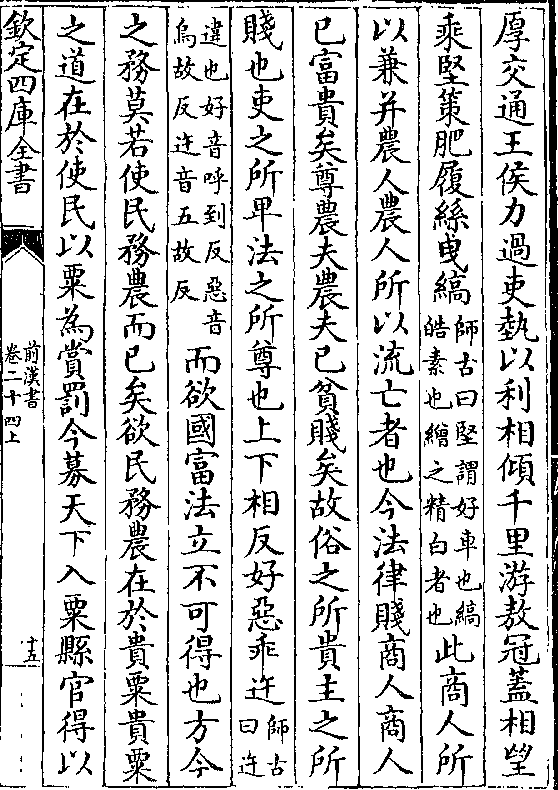 厚交通王侯力過吏埶以利相傾千里游敖冠蓋相望
乘堅策肥履絲曳縞師古曰堅謂好車也縞皓素也繒之精白者也此商人所
以兼并農人農人所以流亡者也今法律賤商人商人
已富貴矣尊農夫農夫已貧賤矣故俗之所貴主之所
賤也吏之所卑法之所尊也上下相反好惡乖迕師古曰迕
違也好音呼到反惡音烏故反迕音五故反而欲國富法立不可得也方今
之務莫若使民務農而已矣欲民務農在於貴粟貴粟
之道在於使民以粟為賞罰今募天下入粟縣官得以
欽定四庫全書
前漢書
卷二十四上
十五